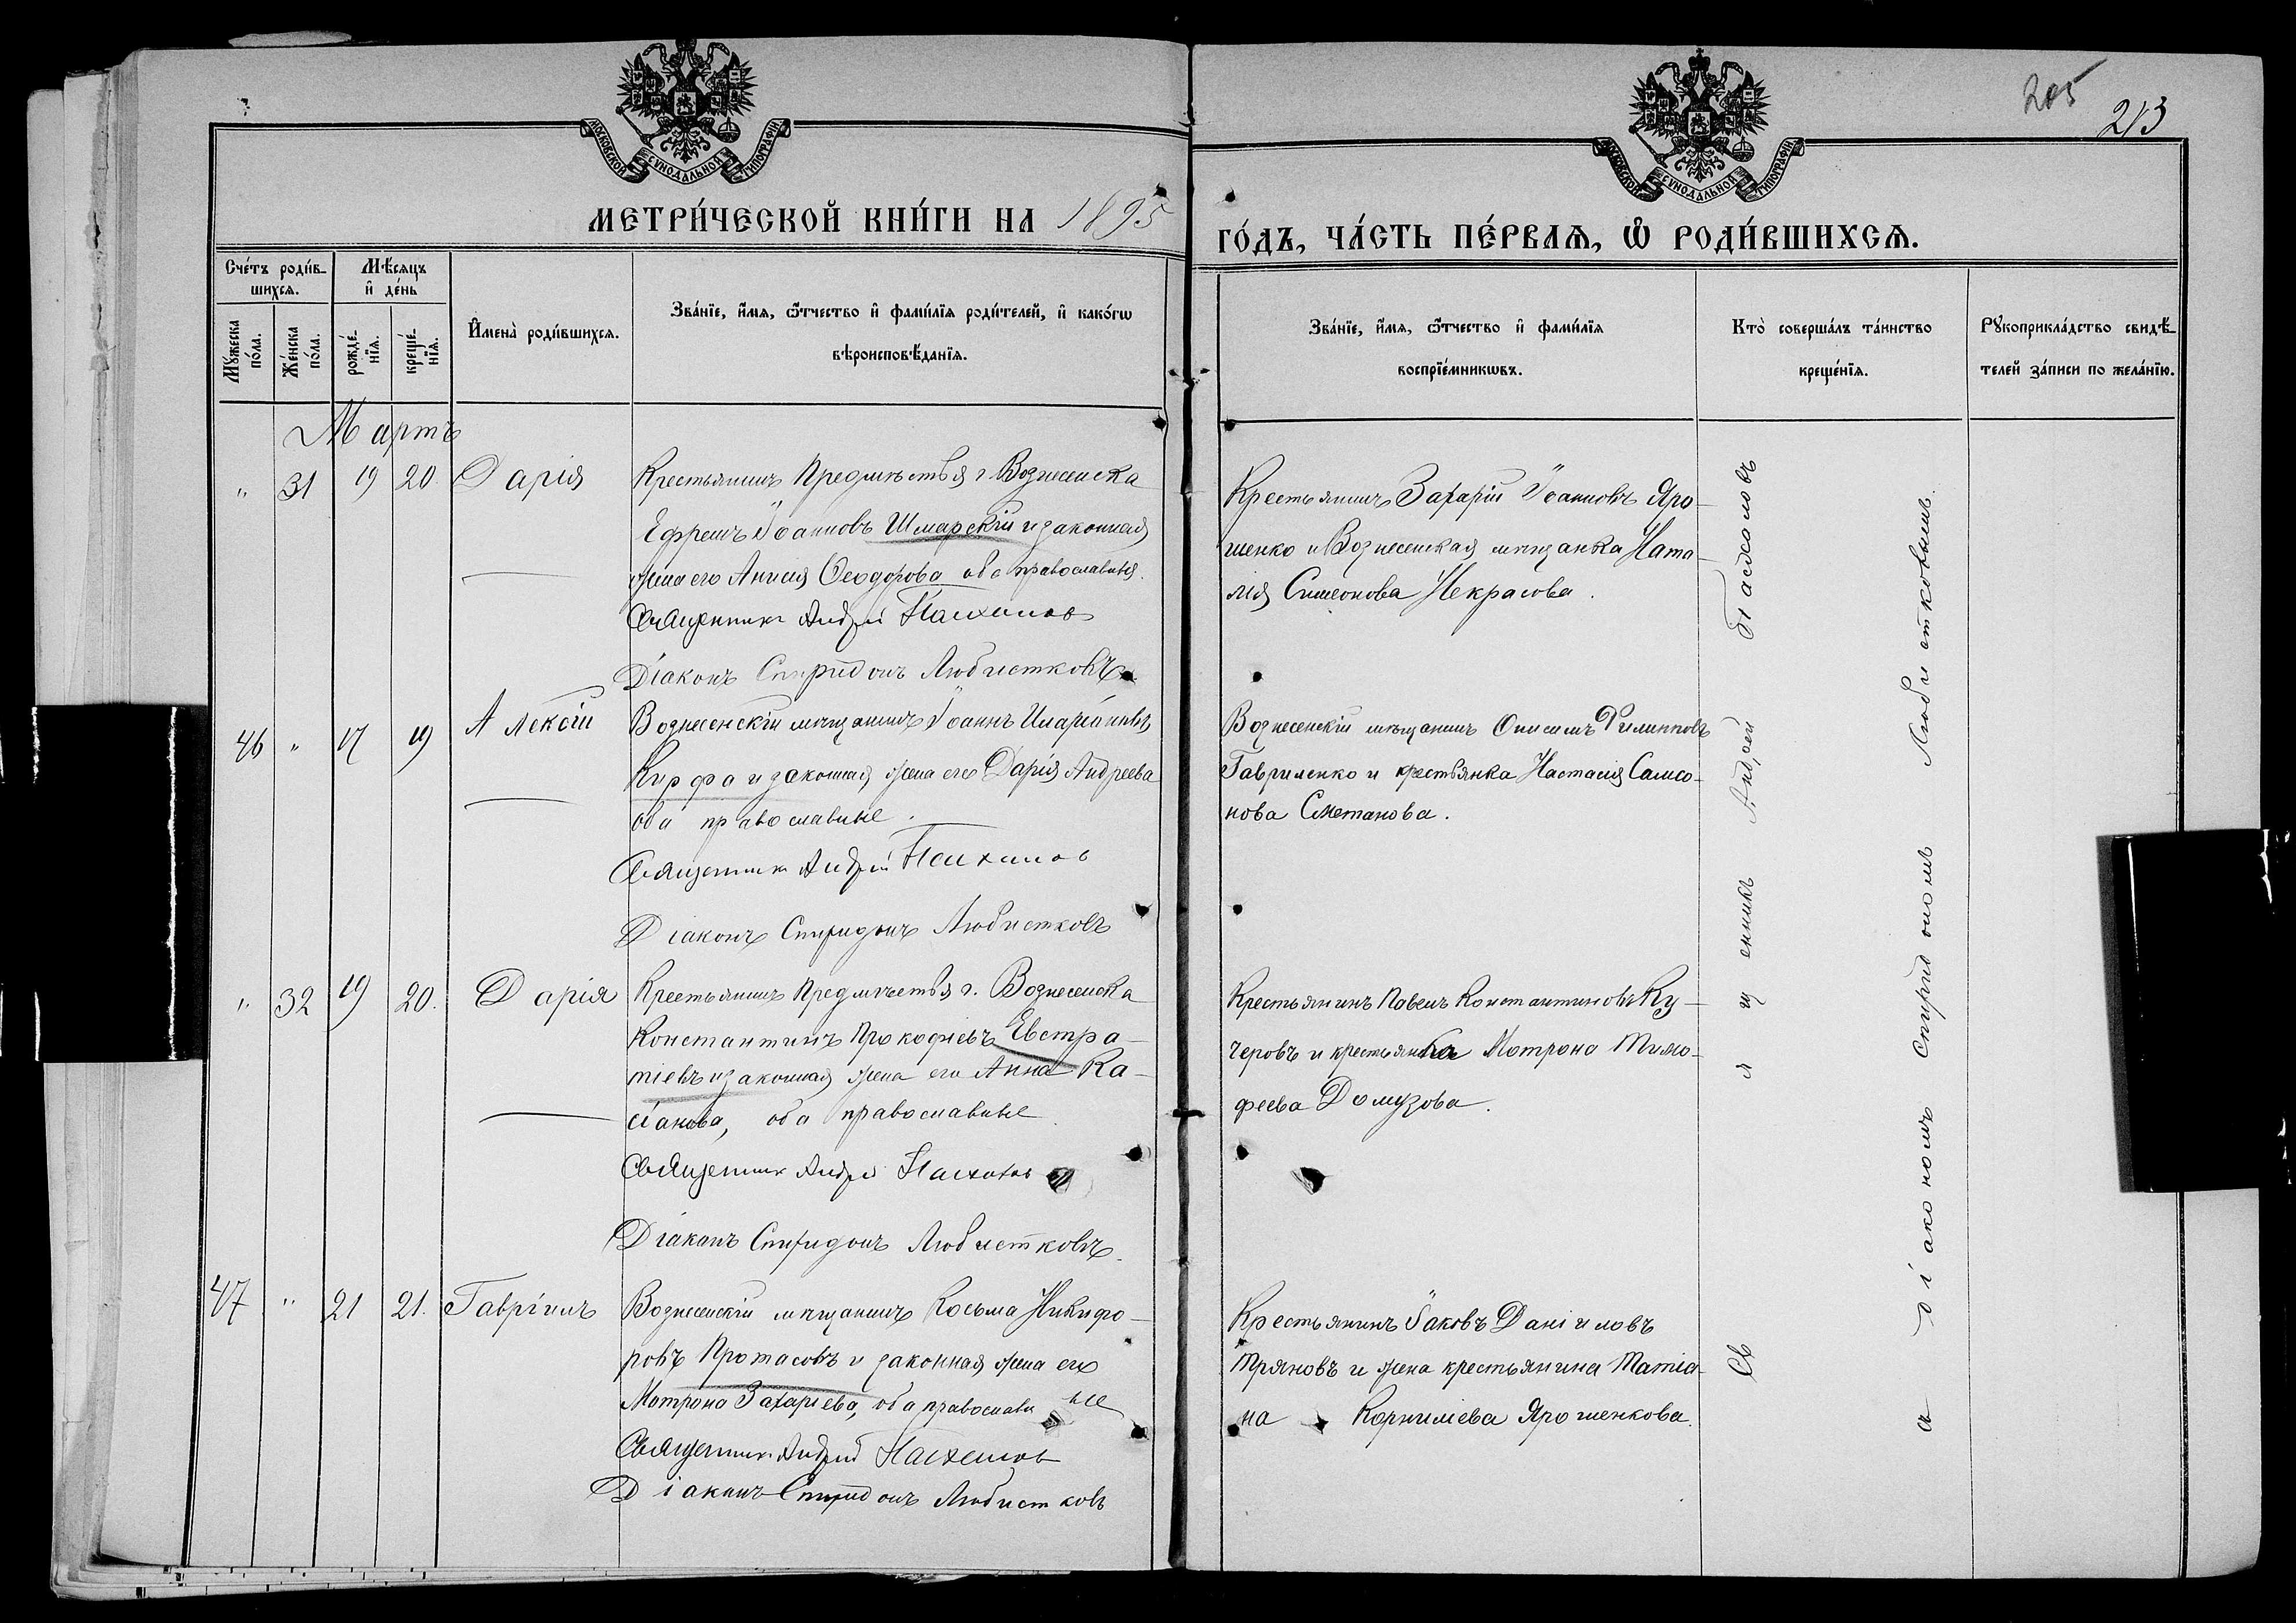 205
213
МОСКОВСКОЙ СѴНОДАЛЬНОЙ ТИПОГРАФІИ
МОСКОВСКОЙ СѴНОДАЛЬНОЙ ТИПОГРАФІИ
МЕТРИ́ЧЕСКОЙ КНИ́ГИ НА 1895
ГО́ДЪ, ЧА́СТЬ ПЕ́РВАѦ, Ѡ РОДИ́ВШИХСѦ.
Сче́тъ роди́в-
шихсѧ.
Мѣ́сѧцъ
и де́нь
Мꙋ́жеска
по́ла.
Же́нска
по́ла.
рожде́-
нїѧ.
креще́-
нїѧ.
Имена̀ роди́вшихсѧ.
Зва́нїе, и́мѧ, ѻ҆́тчество и фами́лїѧ роди́телей, и како́гѡ
вѣроисповѣ́данїѧ.
Зва́нїе, и́мѧ, ѻ҆́тчество и фами́лїѧ
воспрїе́мникѡвъ.
Кто̀ соверша́лъ та́инство
креще́нїѧ.
Рꙋкоприкла́дство свидѣ́-
телей за́писи по жела́нїю.
Мартъ
" 31 19 20. Дарія
Крестьянинъ Предмѣстья г. Вознесенска
Ефремъ Іоанновъ Шмарскій и законная
жена его Анисія Ѳеодорова оба православныя.
Священникъ Андрей
Діаконъ Спиридонъ Любистковъ
Крестьянинъ Захарій Іоанновъ Яро-
шенко и Вознесенская мѣщанка Ната-
лія Симеонова Некрасова.
46 " 17 19 Алексій
Вознесенскій мѣщанинъ Іоаннъ Иларіоновъ
Кирфа и законная жена его Дарія Андреева
оба православные.
Священникъ Андрей
Діаконъ Спиридонъ Любистковъ
Вознесенскій мѣщанинъ Онисимъ Филипповъ
Гавриленко и крестьянка Настасія Самсо-
нова Сметанова.
" 32 19 20. Дарія
Крестьянинъ Предмѣстья г. Вознесенска
Константинъ Прокофіевъ Евстра-
тіевъ и законная жена его Анна Ка-
сіанова, оба православные
Священникъ Андрей
Діаконъ Спиридонъ Любистковъ.
Крестьянинъ Павелъ Константиновъ Ку-
черовъ и крестьянка Мотрона Тимо-
феева Домузова.
47 " 21 21. Гавріилъ
Вознесенскій мѣщанинъ Косьма Никифо-
ровъ Протасовъ и законная жена его
Мотрона Захаріева, оба православные
Священникъ Андрей
Діаконъ Спиридонъ Любистковъ
Крестьянинъ Іаковъ Даніиловъ
Тряновъ и жена крестьянина Татіа-
на Корниліева Ярошенкова.
Священникъ Андрей
съ діакономъ Спиридономъ Любистковымъ.